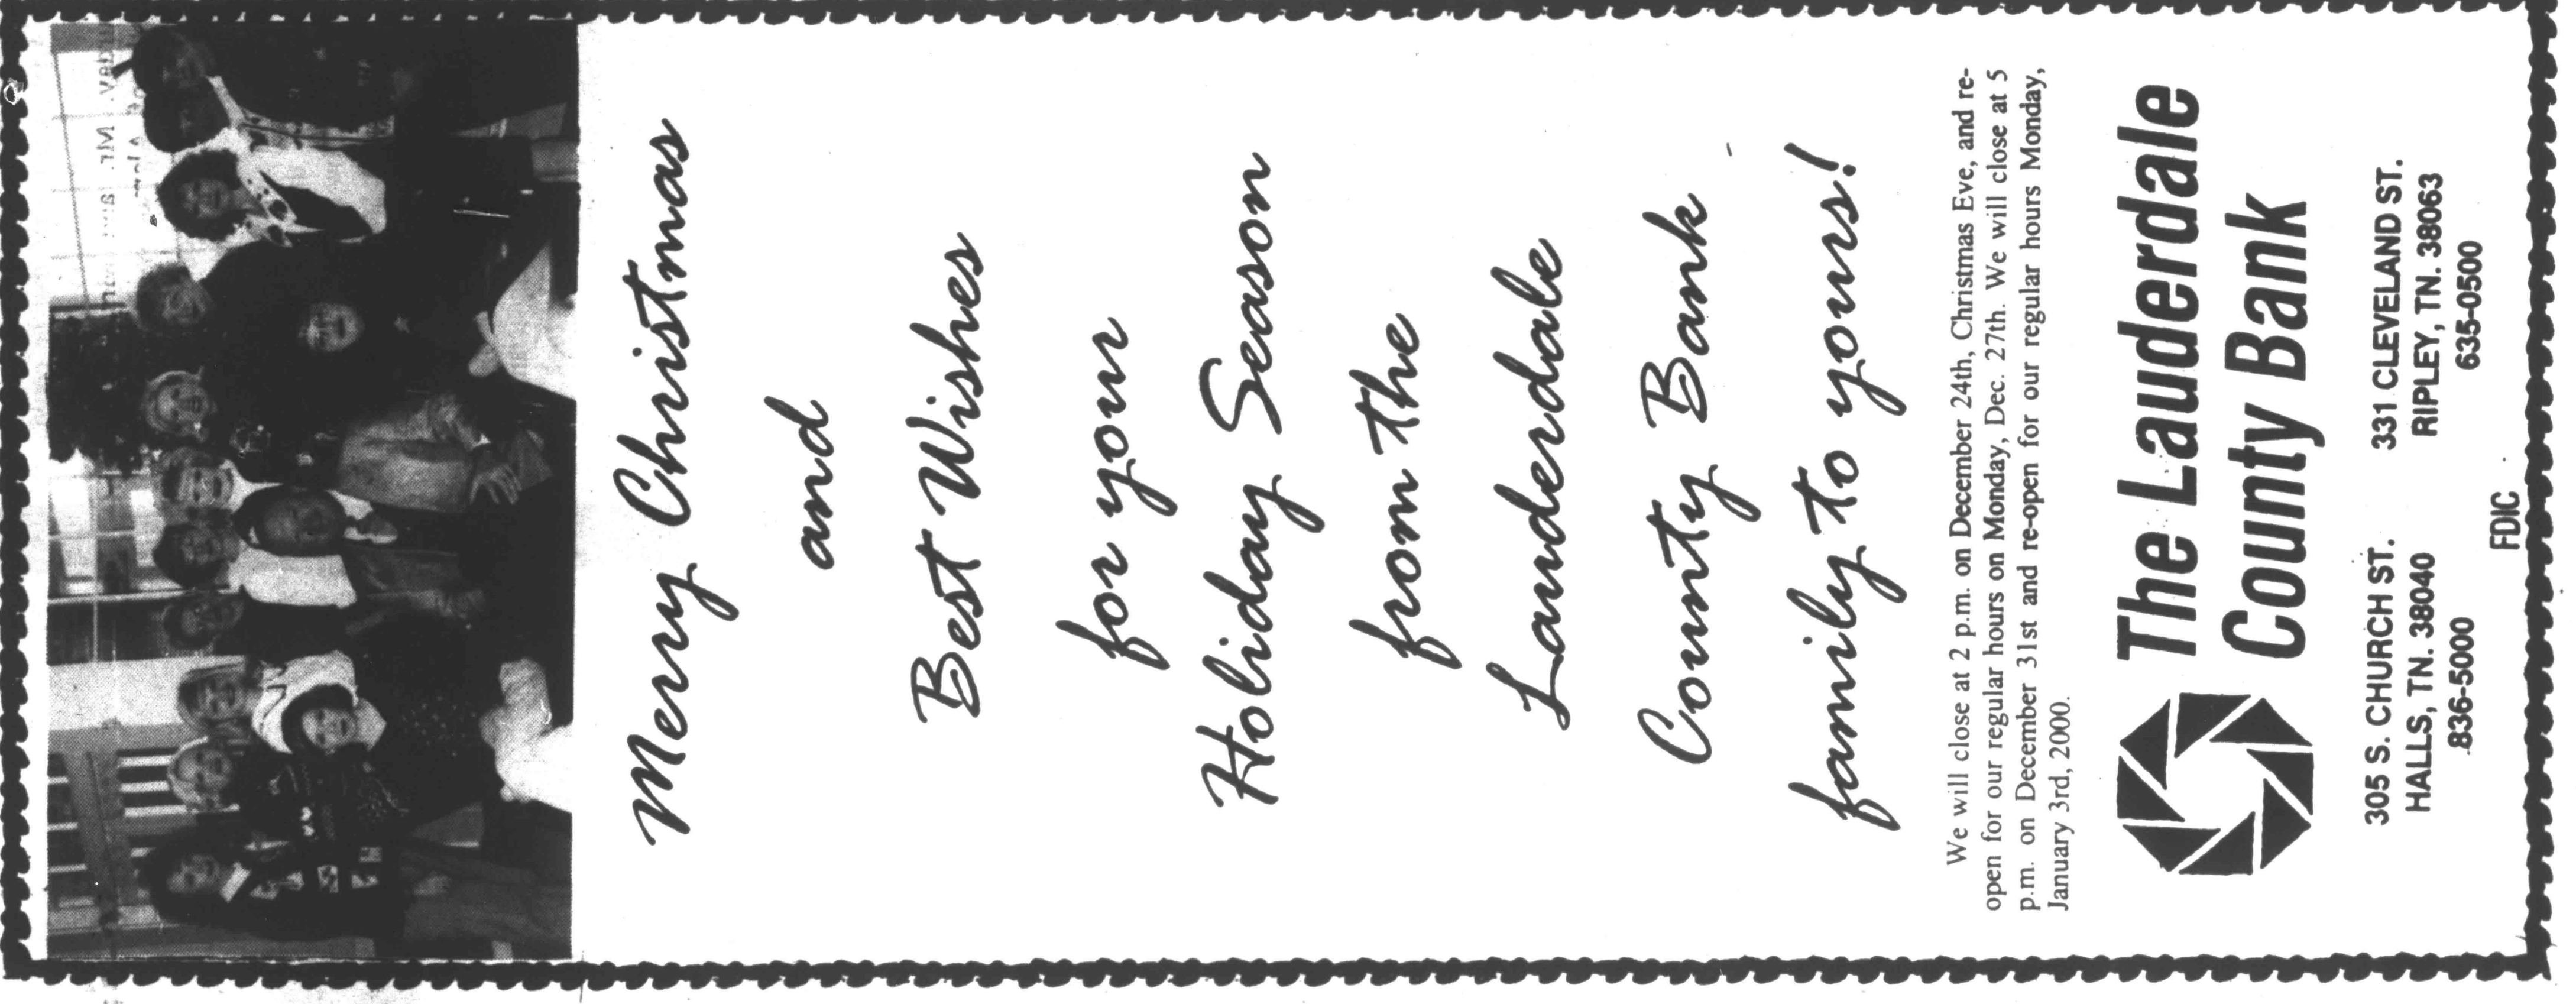 Merry Christmas
and
Best Wishes
for your
Holiday Season
from the
Lauderdale
County Bank
family to yours!
We will close at 2 p.m. on December 24th, Christmas Eve, and re-
open for our regular hours on Monday, Dec. 27th. We will close at 5
p.m. on December 31st and re-open for our regular hours Monday,
January 3rd, 2000.
The Lauderdale
County Bank
305 S. CHURCH ST.
HALLS, TN. 38040
836-5000
331 CLEVELAND ST.
RIPLEY, TN. 38063
635-0500
FDIC